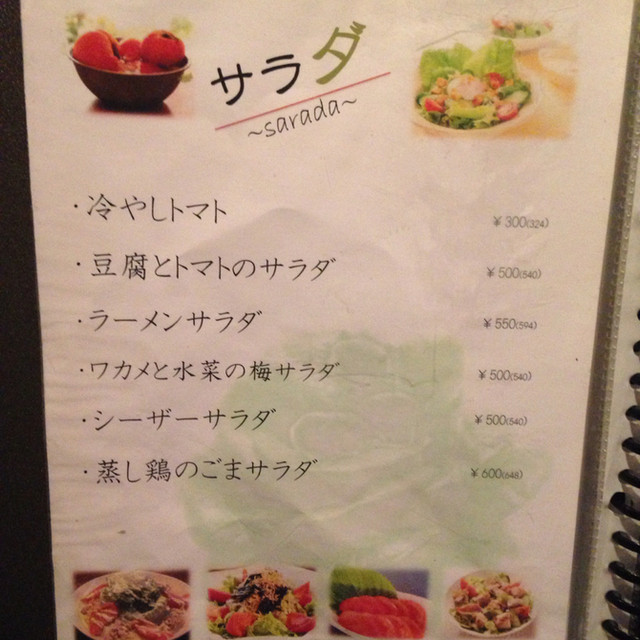 サラダ
~sarada~
・冷やしトマト ¥300(324)
・豆腐とトマトのサラダ ¥500(540)
・ラーメンサラダ ¥550(594)
・ワカメと水菜の梅サラダ ¥500(540)
・シーザーサラダ ¥500(540)
・蒸し鶏のごまサラダ ¥600(648)